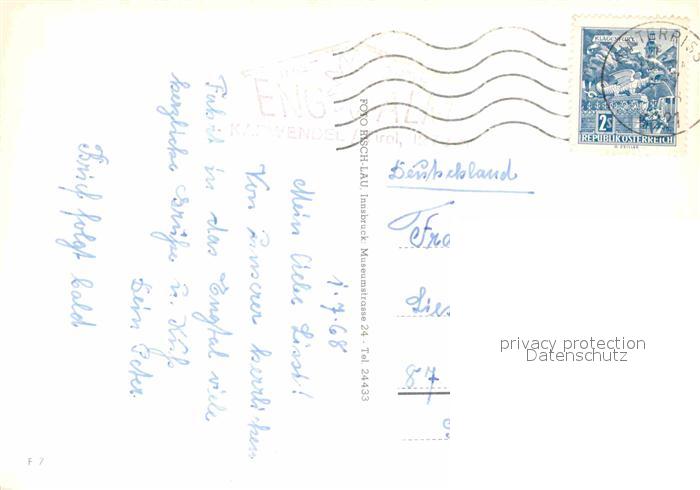 1.7.68
Mein liebe Lissi!
Von unserer herrlichen
Fahrt in das Engtal viele
herzliche Grüße u. Kuß
Dein Peter.
Brief folgt bald
FOTO RISCH-LAU, Innsbruck, Museumstrasse 24 - Tel. 24433
F 7
ENG
KARWENDEL / Tirol,
KLAGENFURT
2 S
REPUBLIK ÖSTERREICH
Deutschland
Fra
Lies
87
privacy protection
Datenschutz